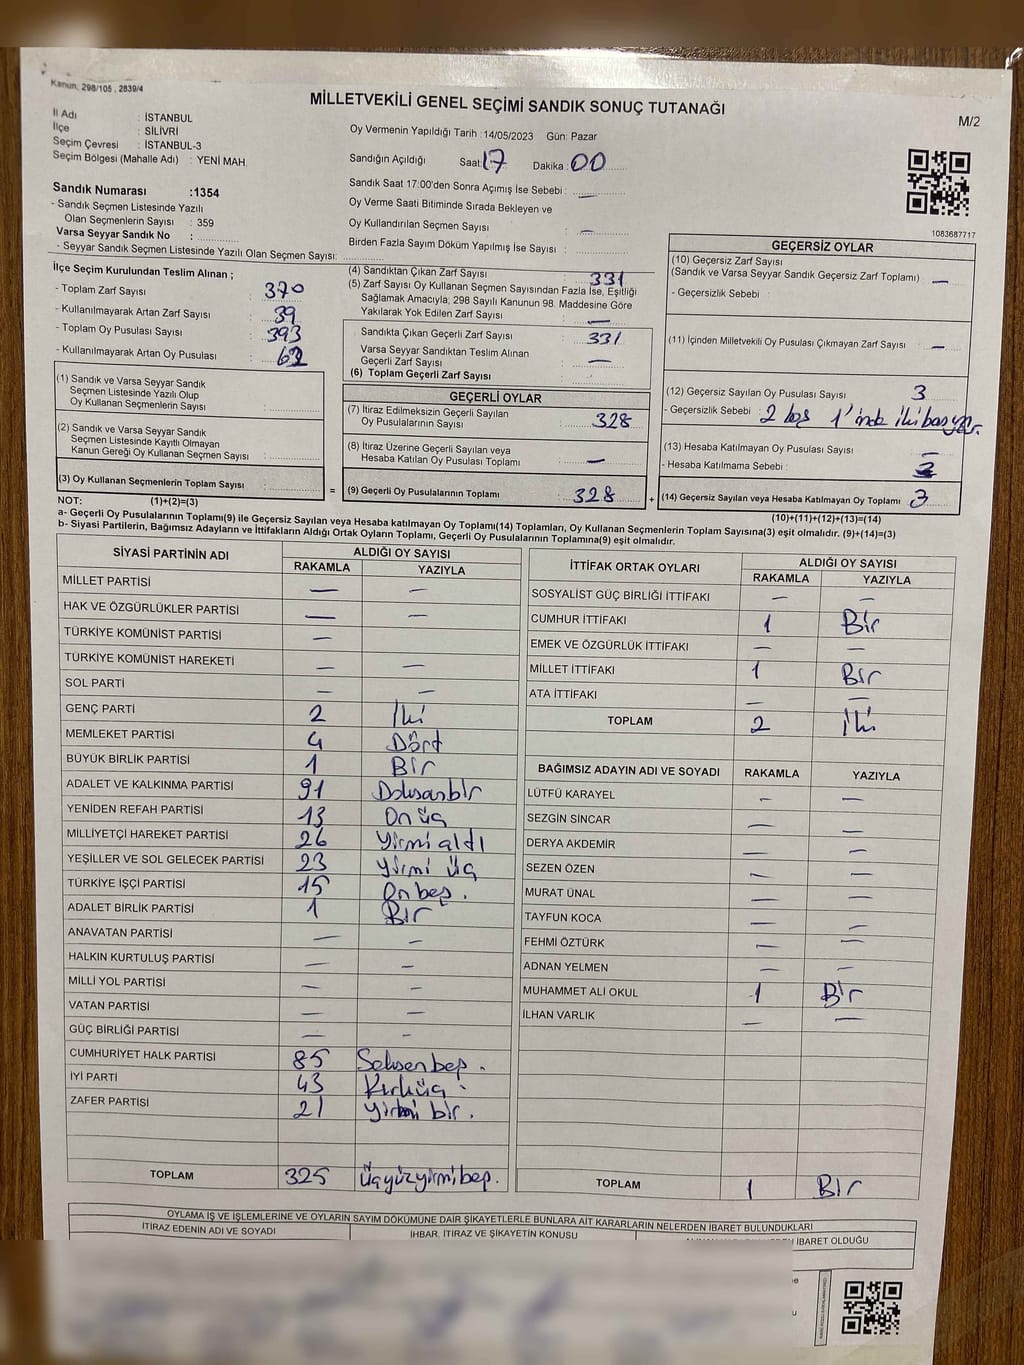 Kanun, 298/105 , 2839/4
MİLLETVEKİLİ GENEL SEÇİMİ SANDIK SONUÇ TUTANAĞI
M/2
İl Adı : İSTANBUL
İlçe : SİLİVRİ
Seçim Çevresi : İSTANBUL-3
Seçim Bölgesi (Mahalle Adı) : YENİ MAH.
Oy Vermenin Yapıldığı Tarih : 14/05/2023 Gün: Pazar
Sandığın Açıldığı Saat: 17 Dakika: 00
Sandık Saat 17:00'den Sonra Açımış İse Sebebi : —
Oy Verme Saati Bitiminde Sırada Bekleyen ve
Oy Kullandırılan Seçmen Sayısı : —
Birden Fazla Sayım Döküm Yapılmış İse Sayısı :
1083687717
Sandık Numarası : 1354
- Sandık Seçmen Listesinde Yazılı
Olan Seçmenlerin Sayısı : 359
Varsa Seyyar Sandık No :
- Seyyar Sandık Seçmen Listesinde Yazılı Olan Seçmen Sayısı:
İlçe Seçim Kurulundan Teslim Alınan ;
- Toplam Zarf Sayısı : 370
- Kullanılmayarak Artan Zarf Sayısı : 39
- Toplam Oy Pusulası Sayısı : 393
- Kullanılmayarak Artan Oy Pusulası : 62
(1) Sandık ve Varsa Seyyar Sandık
Seçmen Listesinde Yazılı Olup
Oy Kullanan Seçmenlerin Sayısı :
(2) Sandık ve Varsa Seyyar Sandık
Seçmen Listesinde Kayıtlı Olmayan
Kanun Gereği Oy Kullanan Seçmen Sayısı :
(3) Oy Kullanan Seçmenlerin Toplam Sayısı :
(1)+(2)=(3)
=
(4) Sandıktan Çıkan Zarf Sayısı : 331
(5) Zarf Sayısı Oy Kullanan Seçmen Sayısından Fazla İse, Eşitliği
Sağlamak Amacıyla; 298 Sayılı Kanunun 98. Maddesine Göre
Yakılarak Yok Edilen Zarf Sayısı : —
Sandıkta Çıkan Geçerli Zarf Sayısı : 331
Varsa Seyyar Sandıktan Teslim Alınan
Geçerli Zarf Sayısı : —
(6) Toplam Geçerli Zarf Sayısı :
GEÇERLİ OYLAR
(7) İtiraz Edilmeksizin Geçerli Sayılan
Oy Pusulalarının Sayısı : 328
(8) İtiraz Üzerine Geçerli Sayılan veya
Hesaba Katılan Oy Pusulası Toplamı : —
(9) Geçerli Oy Pusulalarının Toplamı : 328
+
GEÇERSİZ OYLAR
(10) Geçersiz Zarf Sayısı
(Sandık ve Varsa Seyyar Sandık Geçersiz Zarf Toplamı) : —
- Geçersizlik Sebebi :
(11) İçinden Milletvekili Oy Pusulası Çıkmayan Zarf Sayısı : —
(12) Geçersiz Sayılan Oy Pusulası Sayısı : 3
- Geçersizlik Sebebi : 2 boş 1'inde iki
(13) Hesaba Katılmayan Oy Pusulası Sayısı : —
- Hesaba Katılmama Sebebi :
(14) Geçersiz Sayılan veya Hesaba Katılmayan Oy Toplamı : 3
(10)+(11)+(12)+(13)=(14)
NOT:
a- Geçerli Oy Pusulalarının Toplamı(9) ile Geçersiz Sayılan veya Hesaba katılmayan Oy Toplamı(14) Toplamları, Oy Kullanan Seçmenlerin Toplam Sayısına(3) eşit olmalıdır. (9)+(14)=(3)
b- Siyasi Partilerin, Bağımsız Adayların ve İttifakların Aldığı Ortak Oyların Toplamı, Geçerli Oy Pusulalarının Toplamına(9) eşit olmalıdır.
SİYASİ PARTİNİN ADI ALDIĞI OY SAYISI
RAKAMLA YAZIYLA
MİLLET PARTİSİ — —
HAK VE ÖZGÜRLÜKLER PARTİSİ — —
TÜRKİYE KOMÜNİST PARTİSİ —
TÜRKİYE KOMÜNİST HAREKETİ — —
SOL PARTİ — —
GENÇ PARTİ 2 İki
MEMLEKET PARTİSİ 4 Dört
BÜYÜK BİRLİK PARTİSİ 1 Bir
ADALET VE KALKINMA PARTİSİ 91 Doksanbir
YENİDEN REFAH PARTİSİ 13 On üç
MİLLİYETÇİ HAREKET PARTİSİ 26 Yirmi altı
YEŞİLLER VE SOL GELECEK PARTİSİ 23 Yirmi üç
TÜRKİYE İŞÇİ PARTİSİ 15 Onbeş.
ADALET BİRLİK PARTİSİ 1 Bir
ANAVATAN PARTİSİ — —
HALKIN KURTULUŞ PARTİSİ — —
MİLLİ YOL PARTİSİ — —
VATAN PARTİSİ — —
GÜÇ BİRLİĞİ PARTİSİ — —
CUMHURİYET HALK PARTİSİ 85 Seksenbeş.
İYİ PARTİ 43 Kırküç.
ZAFER PARTİSİ 21 Yirmi bir.
TOPLAM 325 Üçyüzyirmibeş.
İTTİFAK ORTAK OYLARI ALDIĞI OY SAYISI
RAKAMLA YAZIYLA
SOSYALİST GÜÇ BİRLİĞİ İTTİFAKI — —
CUMHUR İTTİFAKI 1 Bir
EMEK VE ÖZGÜRLÜK İTTİFAKI — —
MİLLET İTTİFAKI 1 Bir
ATA İTTİFAKI — —
TOPLAM 2 İki
BAĞIMSIZ ADAYIN ADI VE SOYADI RAKAMLA YAZIYLA
LÜTFÜ KARAYEL — —
SEZGİN SİNCAR — —
DERYA AKDEMİR — —
SEZEN ÖZEN — —
MURAT ÜNAL — —
TAYFUN KOCA — —
FEHMİ ÖZTÜRK — —
ADNAN YELMEN — —
MUHAMMET ALİ OKUL 1 Bir
İLHAN VARLIK — —
TOPLAM 1 Bir
OYLAMA İŞ VE İŞLEMLERİNE VE OYLARIN SAYIM DÖKÜMÜNE DAİR ŞİKAYETLERLE BUNLARA AİT KARARLARIN NELERDEN İBARET BULUNDUKLARI
İTİRAZ EDENİN ADI VE SOYADI İHBAR, İTİRAZ VE ŞİKAYETİN KONUSU İBARET OLDUĞU